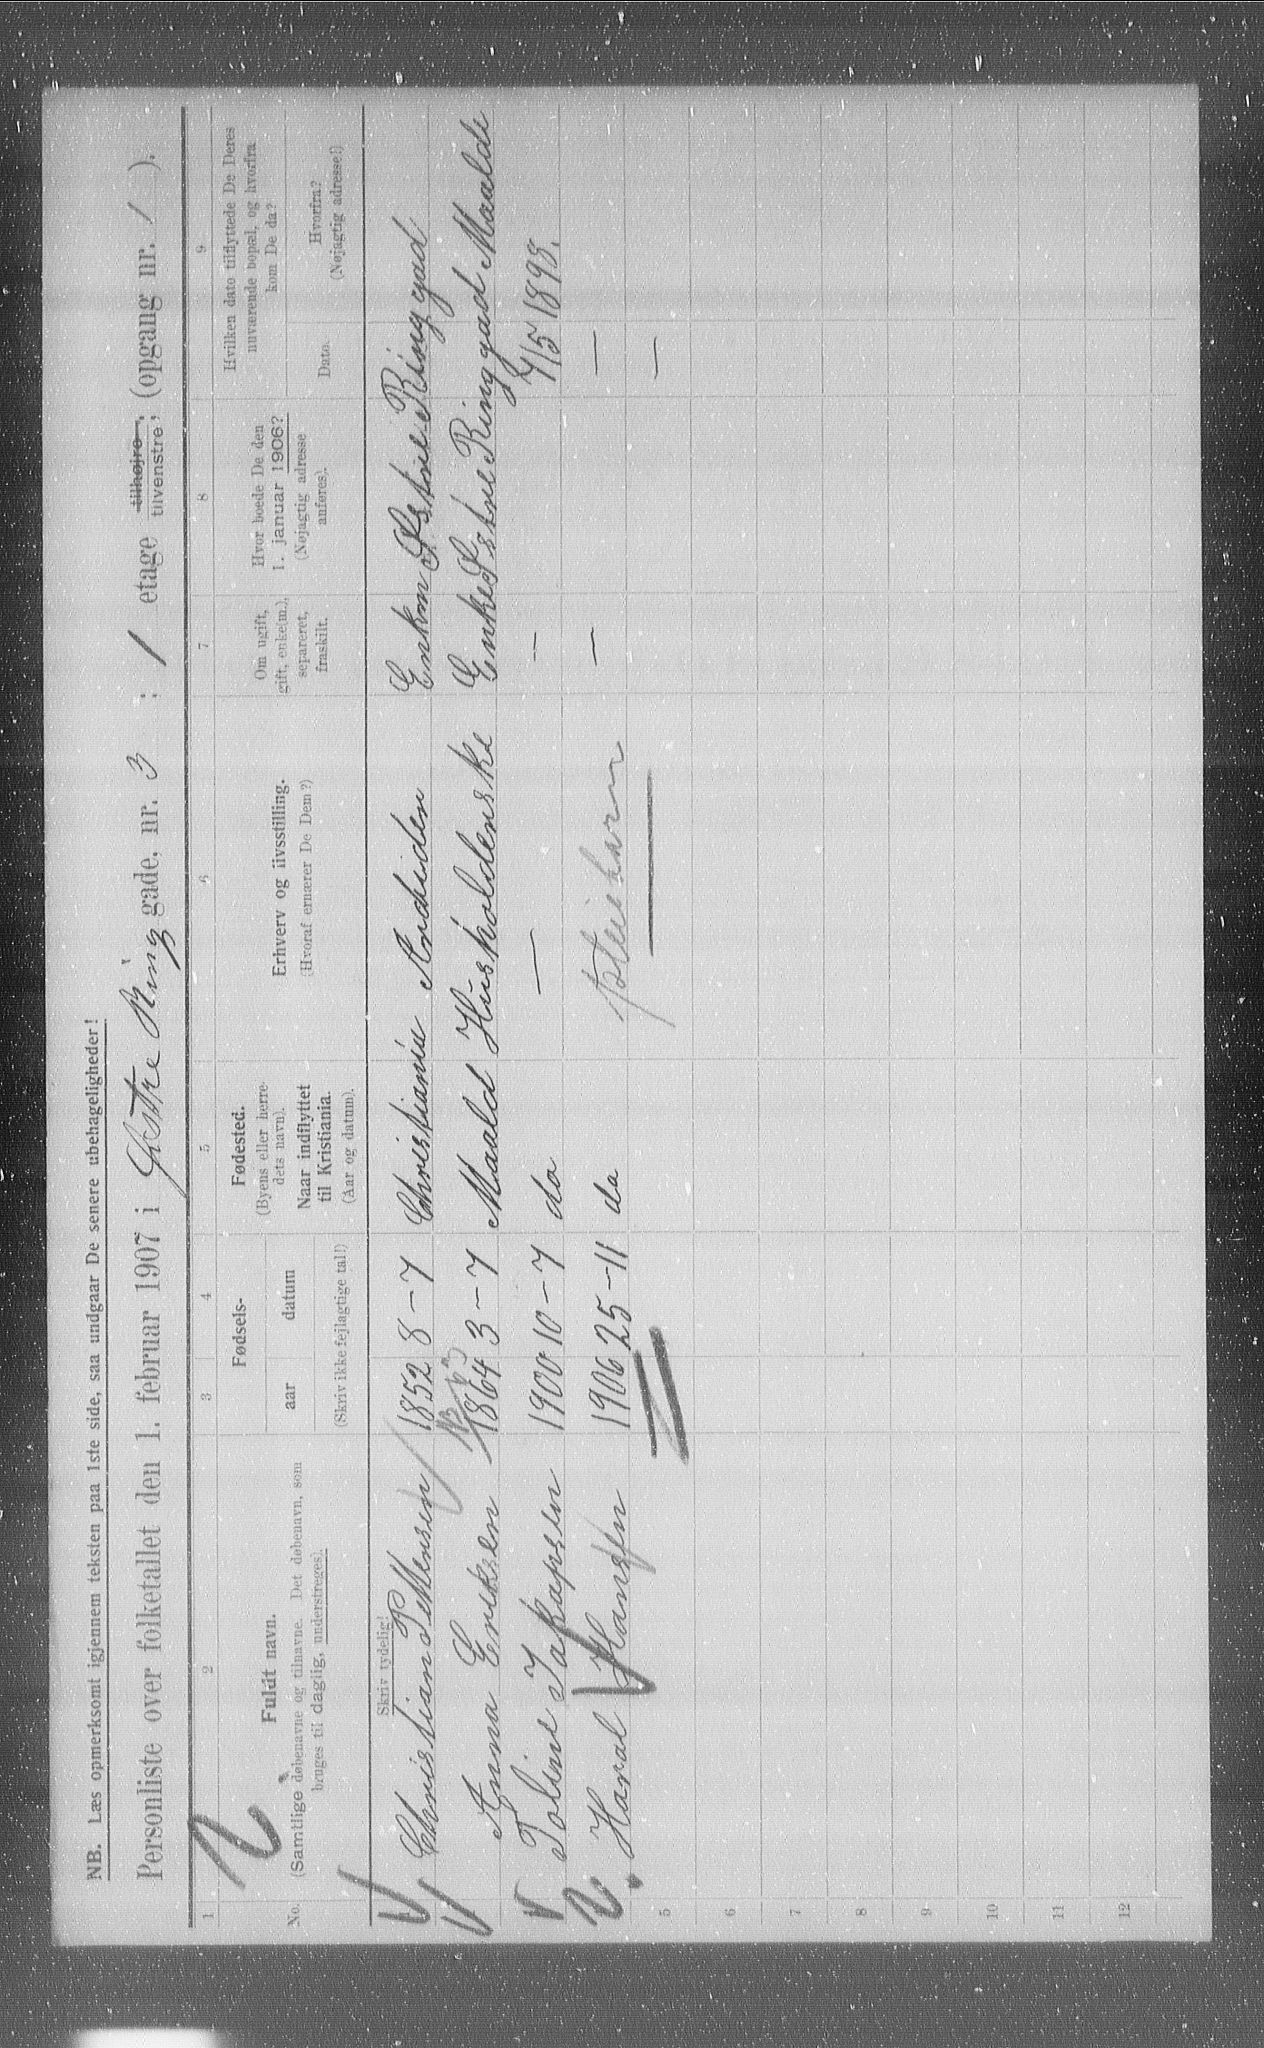 NB. Læs opmerksomt igjennem teksten paa 1ste side, saa undgaar De senere ubehageligheder!
Personliste over folketallet den 1. februar 1907 i Østre Ring gade, nr. 3 : 1 etage tilhøjre, tilvenstre, (opgang nr. 1 ).
1 2 3 4 5 6 7 8 9
No.
Fuldt navn.
(Samtlige døbenavne og tilnavne. Det døbenavn, som
bruges til daglig, understreges).
Fødsels-
aar datum
(Skriv ikke fejlagtige tal!)
Fødested.
(Byens eller herre-
dets navn).
Naar indflyttet
til Kristiania.
(Aar og datum).
Erhverv og livsstilling.
(Hvoraf ernærer De Dem?)
Om ugift,
gift, enke(m.),
separeret,
fraskilt.
Hvor boede De den
1. januar 1906?
(Nøjagtig adresse
anføres).
Hvilken dato tilflyttede De Deres
nuværende bopæl, og hvorfra
kom De da?
Dato.
Hvorfra?
(Nøjagtig adresse!)
Skriv tydelig!
Christian 1852 8-7 Christiania Enkm Østre Ringgad
Anna Eriksen 1864 3-7 Maald Husholderske Enke Østre Ringgad Maalde
Toline Jakopsen 1900 10-7 do — — 7/5 1898.
Haral Hansen 1906 25-11 do pleiebarn — —
—
5
6
7
8
9
10
11
12